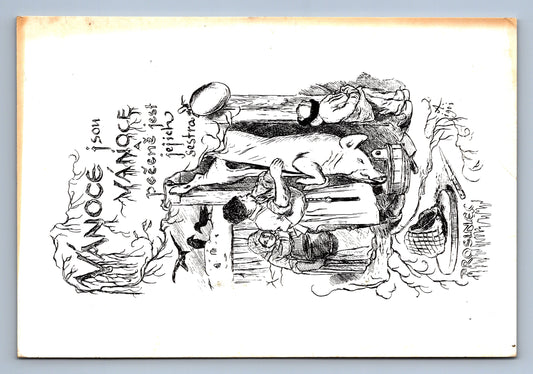 VÁNOCE jsou
VÁNOCE
pečeně jest
jejich
sestra
PROSINEC